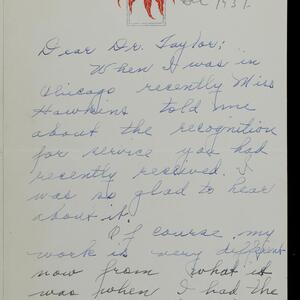 1931.
Dear Dr. Taylor:
When I was in
Chicago recently Miss
Hawkins told me
about the recognition
for service you had
recently received. I
was so glad to hear
about it.
Of course my
work is very different
now from what it
was when I had the